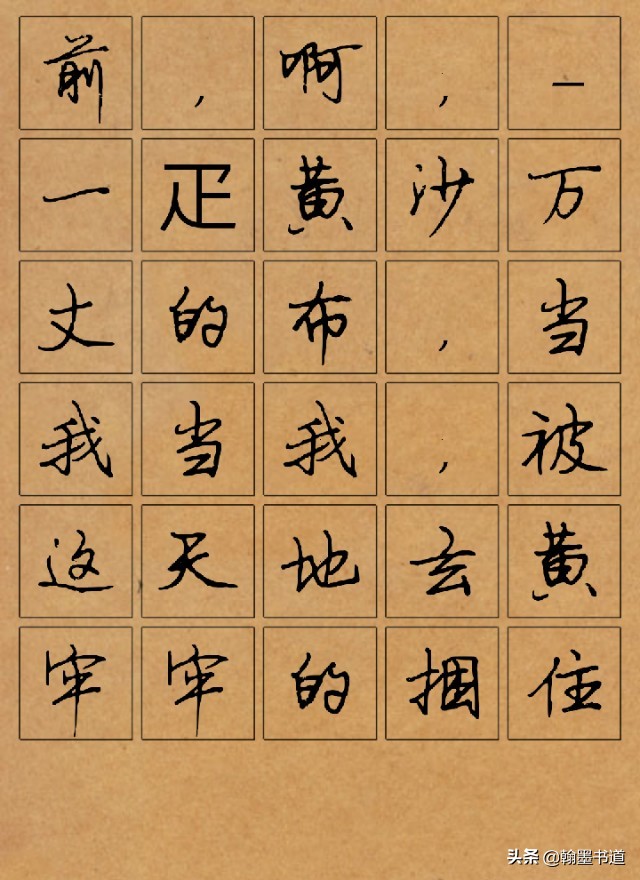 前，啊，一
一疋黄沙万
丈的布，当
我当我，被
这天地玄黄
牢牢的捆住
头条 @翰墨书道